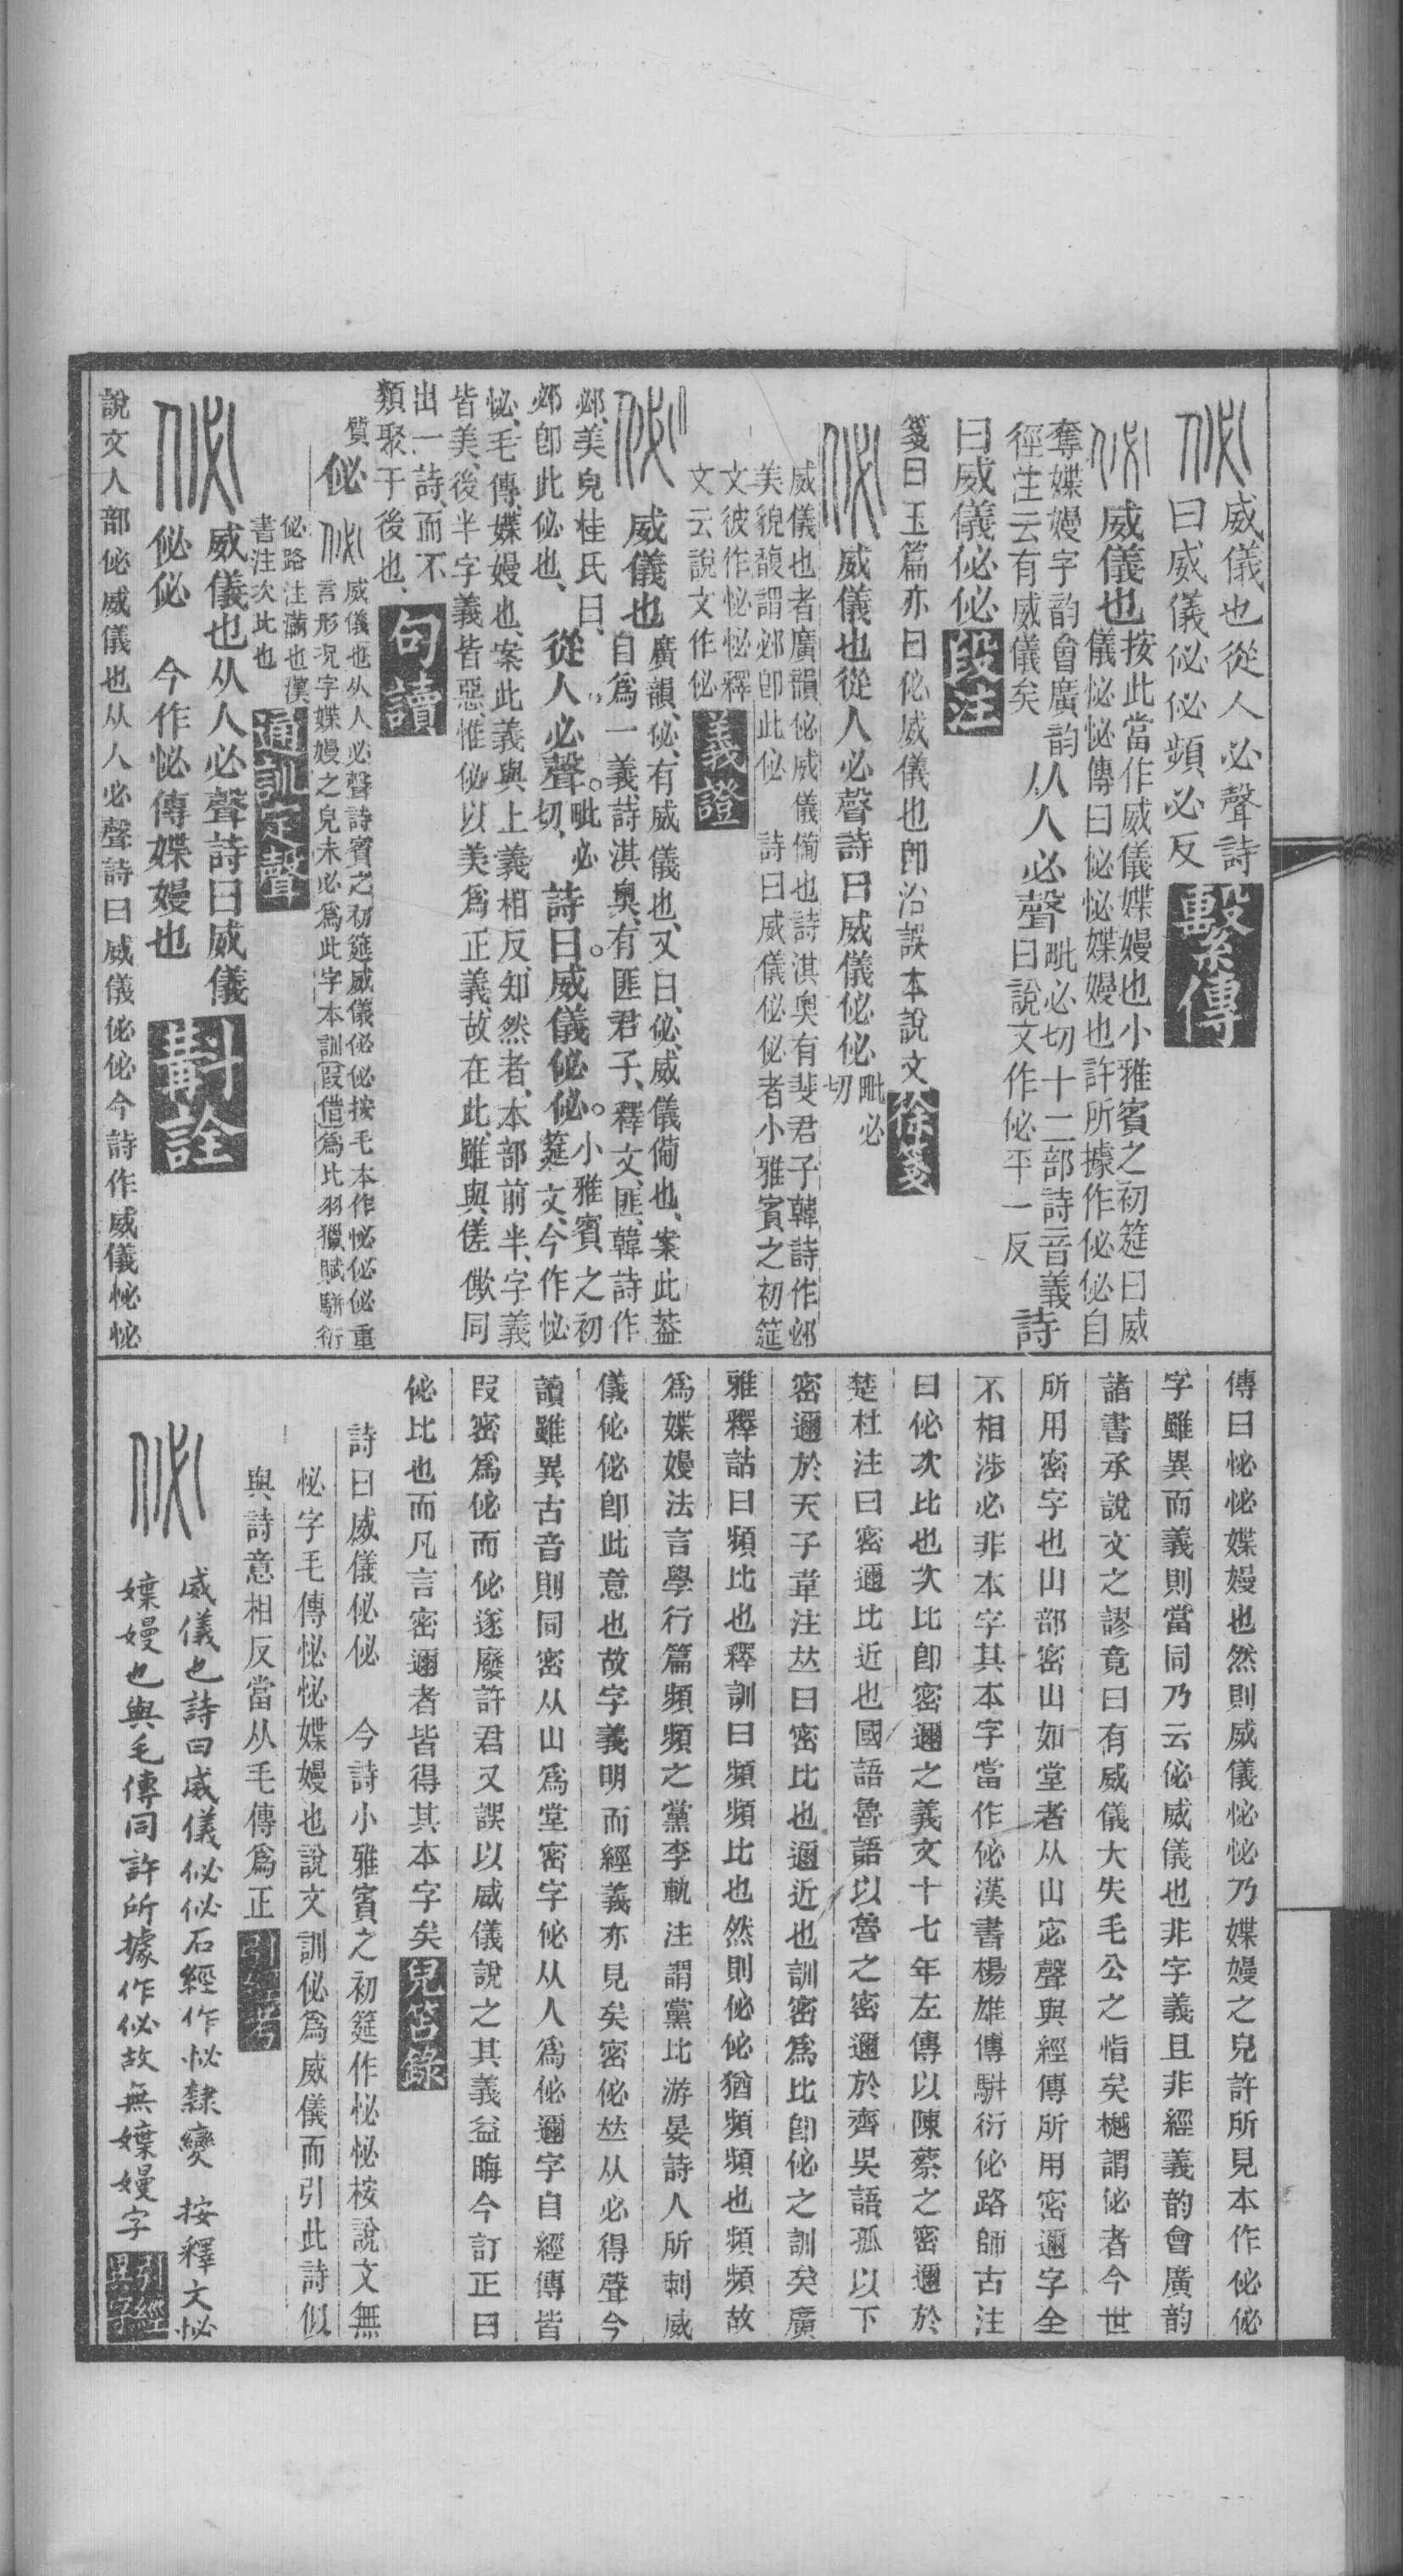 威儀也從人必聲詩
曰威儀佖佖頻必反
繫傳
威儀也
按此當作威儀媟嫚也小雅賓之初筵曰威
儀怭怭傳曰怭怭媟嫚也許所據作佖佖自
奪媟嫚字韵會廣韵
徑注云有威儀矣
从人必聲
毗必切十二部詩音義
曰說文作佖平一反
詩
曰威儀佖佖
段注
箋曰玉篇亦曰佖威儀也卽沿誤本說文
徐箋
威儀也從人必聲詩曰威儀佖佖
毗必
切
威儀也者廣韻佖威儀備也詩淇奧有斐君子韓詩作邲
美貌馥謂邲卽此佖 詩曰威儀佖佖者小雅賓之初筵
文彼作怭怭釋
文云說文作佖
義證
威儀也
廣韻佖、有威儀也、又曰、佖、威儀備也、案此葢
自爲一義、詩淇奧、有匪君子、釋文、匪、韓詩作
邲、美皃、桂氏曰、
邲卽此佖也、
從人必聲。
毗必
切、
詩曰。威儀佖佖。
小雅賓之初
筵文、今作怭
怭、毛傳、媟嫚也、案此義與上義相反、知然者、本部前半、字義
皆美、後半字義皆惡、惟佖以美爲正義、故在此、雖與傞僛同
出一詩、而不
類聚于後也、
句讀
質
佖
威儀也从人必聲詩賓之初筵威儀佖佖按毛本作怭佖佖重
言形況字媟嫚之皃未必爲此字本訓叚借爲比羽獵賦駢衍
佖路注滿也漢
書注次比也
通訓定聲
威儀也从人必聲詩曰威儀
佖佖 今作怭傳媟嫚也
斠詮
說文人部佖威儀也从人必聲詩曰威儀佖佖今詩作威儀怭怭
傳曰怭怭媟嫚也然則威儀怭怭乃媟嫚之皃許所見本作佖佖
字雖異而義則當同乃云佖威儀也非字義且非經義韵會廣韵
諸書承說文之謬竟曰有威儀大失毛公之恉矣樾謂佖者今世
所用密字也山部密山如堂者从山宓聲與經傳所用密邇字全
不相涉必非本字其本字當作佖漢書楊雄傳駢衍佖路師古注
曰佖次比也次比卽密邇之義文十七年左傳以陳蔡之密邇於
楚杜注曰密邇比近也國語魯語以魯之密邇於齊吳語孤以下
密邇於天子韋注竝曰密比也邇近也訓密爲比卽佖之訓矣廣
雅釋詁曰頻比也釋訓曰頻頻比也然則佖佖猶頻頻也頻頻故
爲媟嫚法言學行篇頻頻之黨李軌注謂黨比游晏詩人所刺威
儀佖佖卽此意也故字義明而經義亦見矣密佖竝从必得聲今
讀雖異古音則同密从山爲堂密字佖从人爲佖邇字自經傳皆
叚密爲佖而佖遂廢許君又誤以威儀說之其義益晦今訂正曰
佖比也而凡言密邇者皆得其本字矣
兒笘錄
詩曰威儀佖佖 今詩小雅賓之初筵作怭怭桉說文無
怭字毛傳怭怭媟嫚也說文訓佖爲威儀而引此詩似
與詩意相反當从毛傳爲正
引經考
威儀也詩曰威儀佖佖石經作怭隸變 按釋文怭
媟嫚也與毛傳同許所據作佖故無媟嫚字
引經
異字